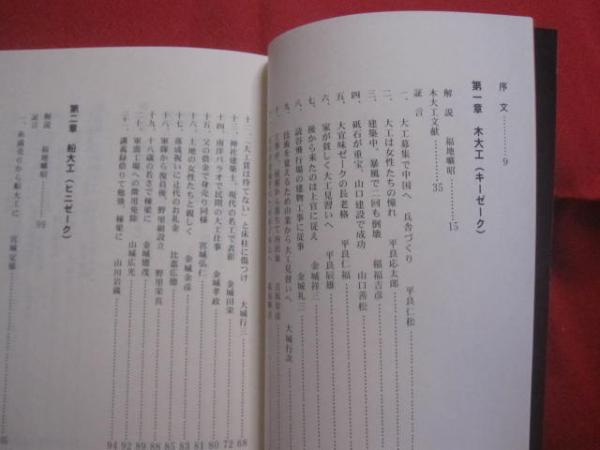 序文………9
第一章 木大工（キーゼーク）
解説 福地曠昭………15
木大工文献………35
証言
一、大工募集で中国へ 兵舎づくり 平良仁松
二、大工は女性たちの憧れ 平良応太郎
三、建築中、暴風で二回も倒壊 稲福吉彦
四、砥石が重宝、山口建設で成功 山口善松
五、大宜味ゼークの長老格 平良仁福
六、家が貧しく大工見習いへ 平良辰雄
七、後から来たのは上官に従え 金城祥三
八、読谷飛行場の建物工事に従事 金城礼三
九、技術を覚えるため山業から大工見習いへ 大城行次
十二、「大工買は待てない」と床柱に傷つけ 大城行三………68
十三、神社建築士、現代の名工で表彰 金城田栄………72
十四、南洋パラオで民間の大工仕事 金城孝政………80
十五、父の借金で身売り同様 宮城弘仁………81
十六、土地の女性たちと親しく 金城金彦………83
十七、落成祝いに辻代のお礼金 比嘉広徳………85
十八、軍隊から復員後、野里組設立 野里栄真………88
十九、十八歳の若さで棟梁に 金城徳茂………89
二十、軍需工場への徴用免除 山城広光………92
二一、講義録借りて勉強、棟梁に 山川岩蔵………94
第二章 船大工（ヒニゼーク）
解説 福地曠昭………99
証言